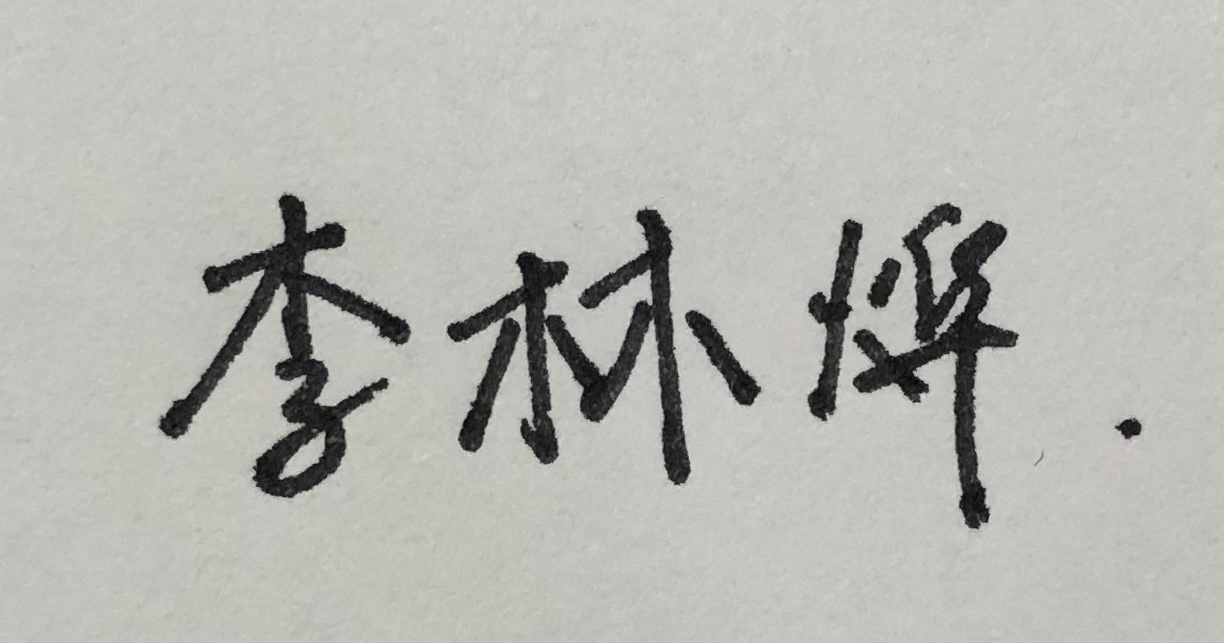 李林烨.